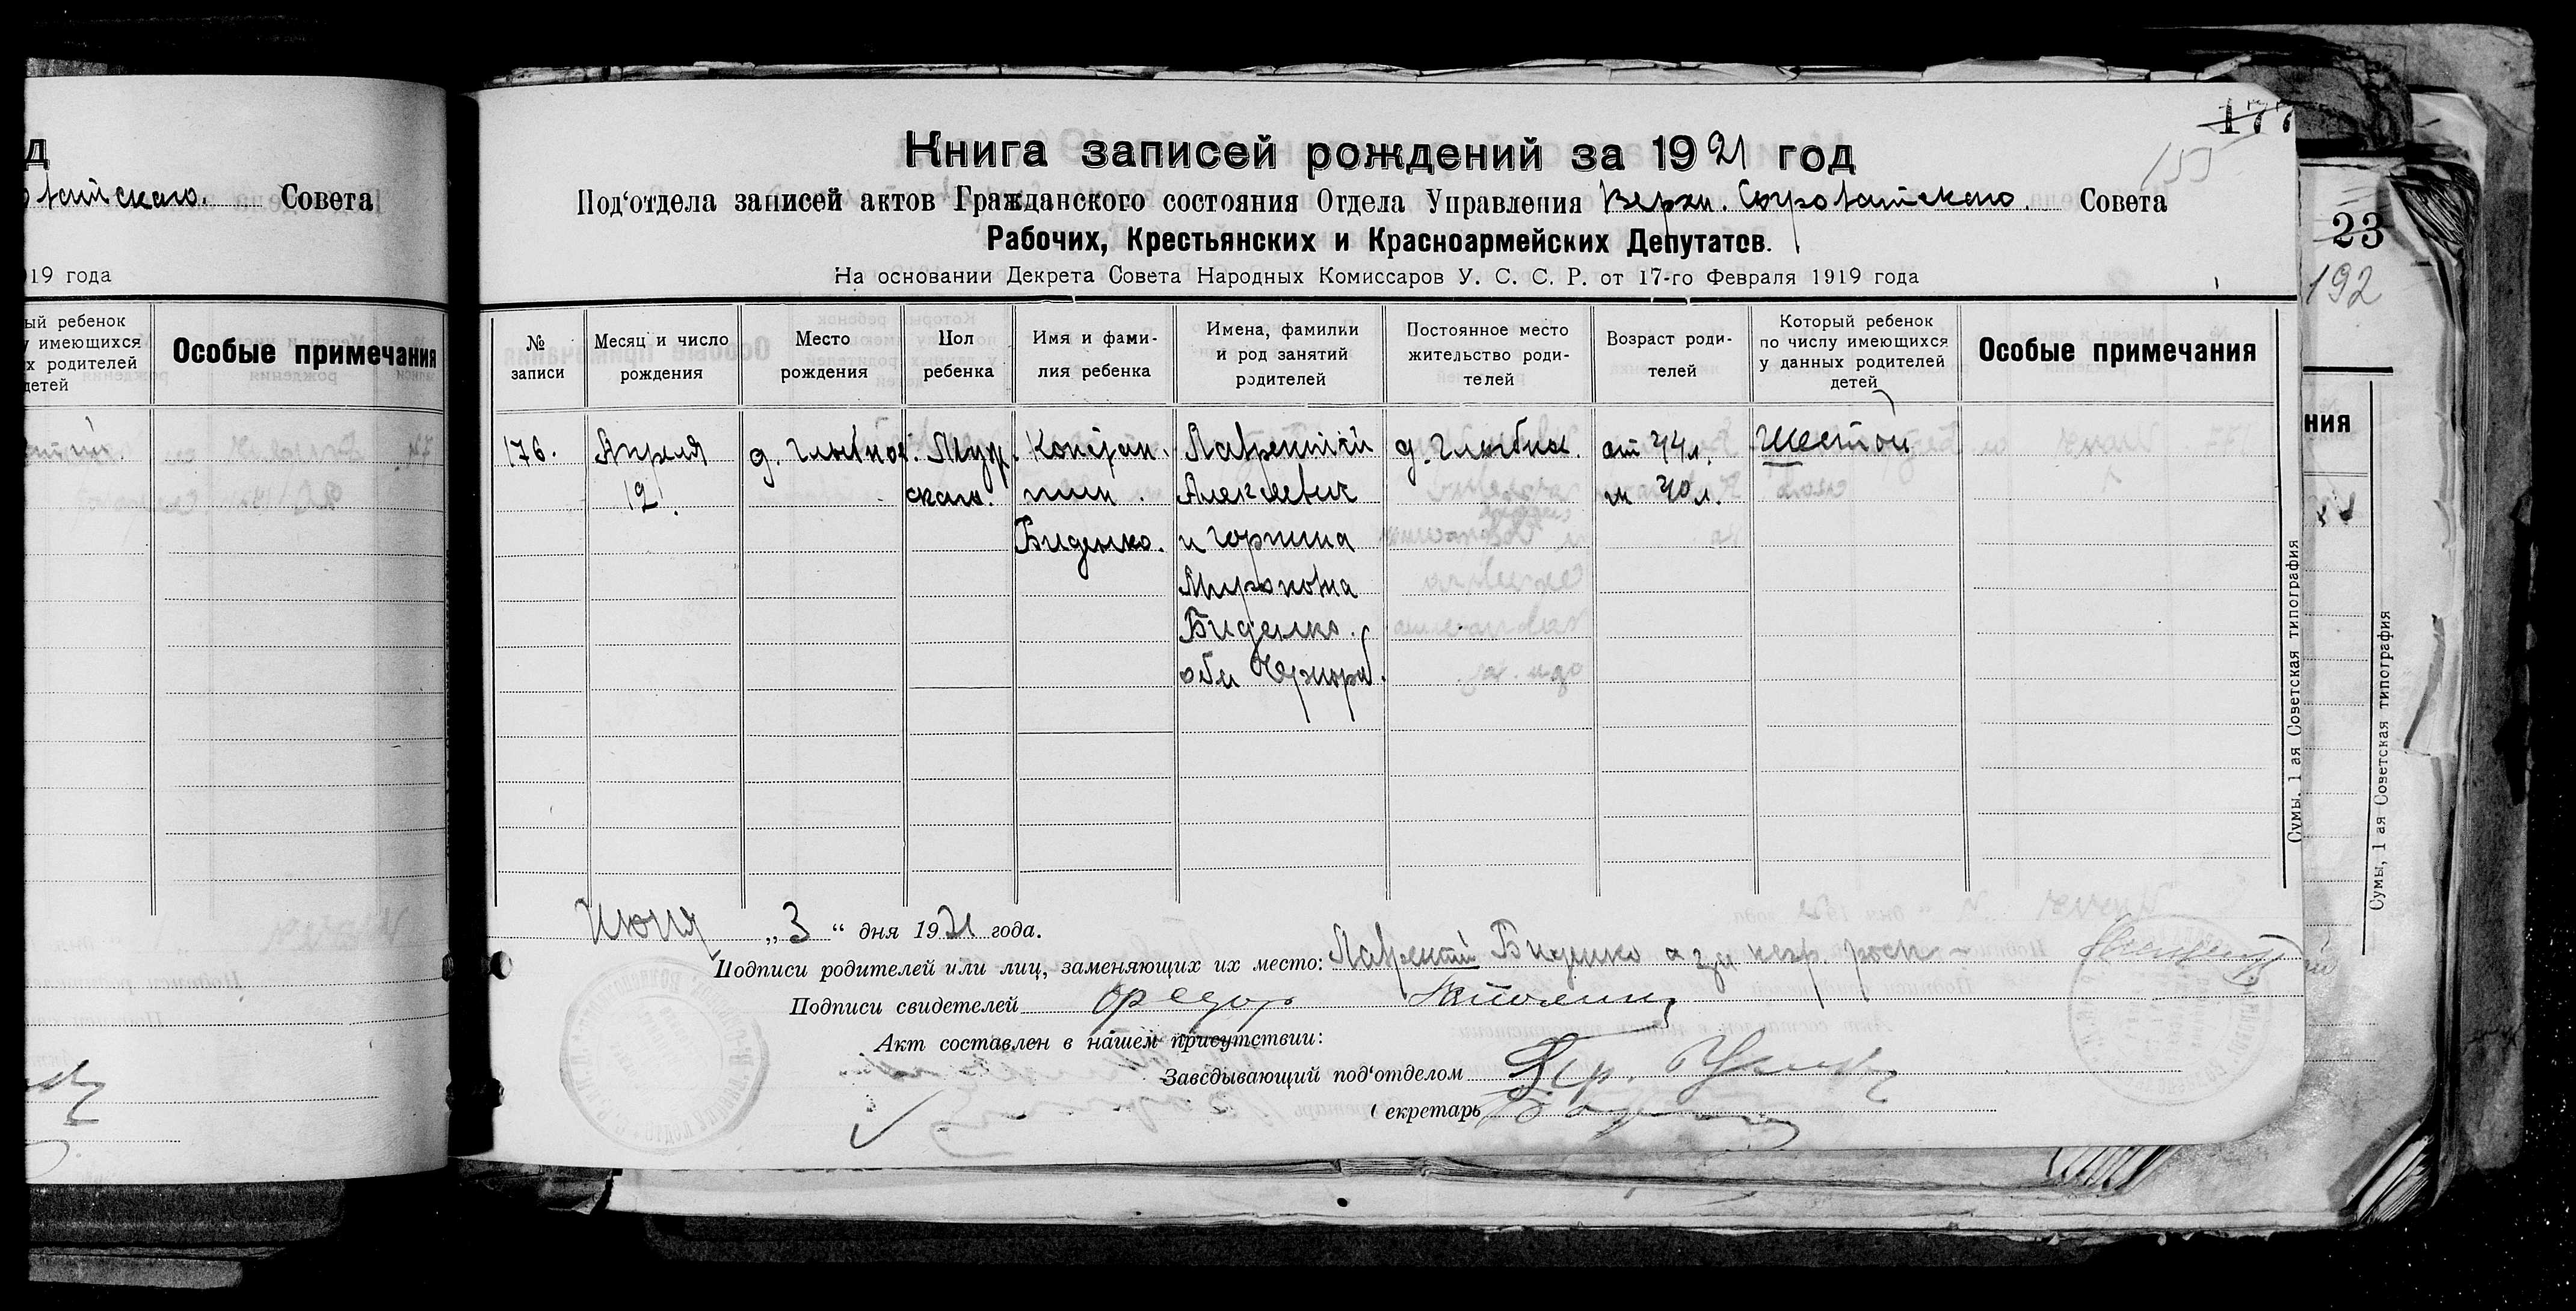 д
Совета
19 года
ый ребенок
у имеющихся
х родителей
детей
Особые примечания
177
155
Книга записей рождений за 1921 год
Под‘отдела записей актов Гражданского состояния Отдела Управления Верхн. Сыроватского Совета
Рабочих, Крестьянских и Красноармейских Депутатов.
На основании Декрета Совета Народных Комиссаров У. С. С. Р. от 17-го Февраля 1919 года
№ записи
Месяц и число рождения
Место рождения
Пол ребенка
Имя и фамилия ребенка
Имена, фамилии и род занятий родителей
Постоянное место жительство родителей
Возраст родителей
Который ребенок по числу имеющихся у данных родителей детей
Особые примечания
176.
Апреля
12.
д. Глыбная.
Муж.
скаго.
Констан.
тин.
Биденко.
Лаврентий
Алексеевич
и Горпина
Мироновна
Биденко.
оба Чернораб.
д. Глыбная.
от 44 л.
м 40 л.
Шестой
Июня „3“ дня 1921 года.
Подписи родителей или лиц, заменяющих их место: Лаврентий Биденко а за негр. росп
Подписи свидетелей
Акт составлен в нашем присутствии:
Заведывающий под‘отделом
Секретарь
Сумы, 1 ая Советская типография
23
192
ния
Сумы, 1 ая Советская типография